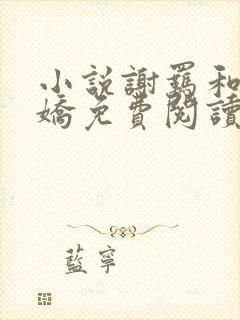 小說謝羈和
嬌免費閱讀
藍寧